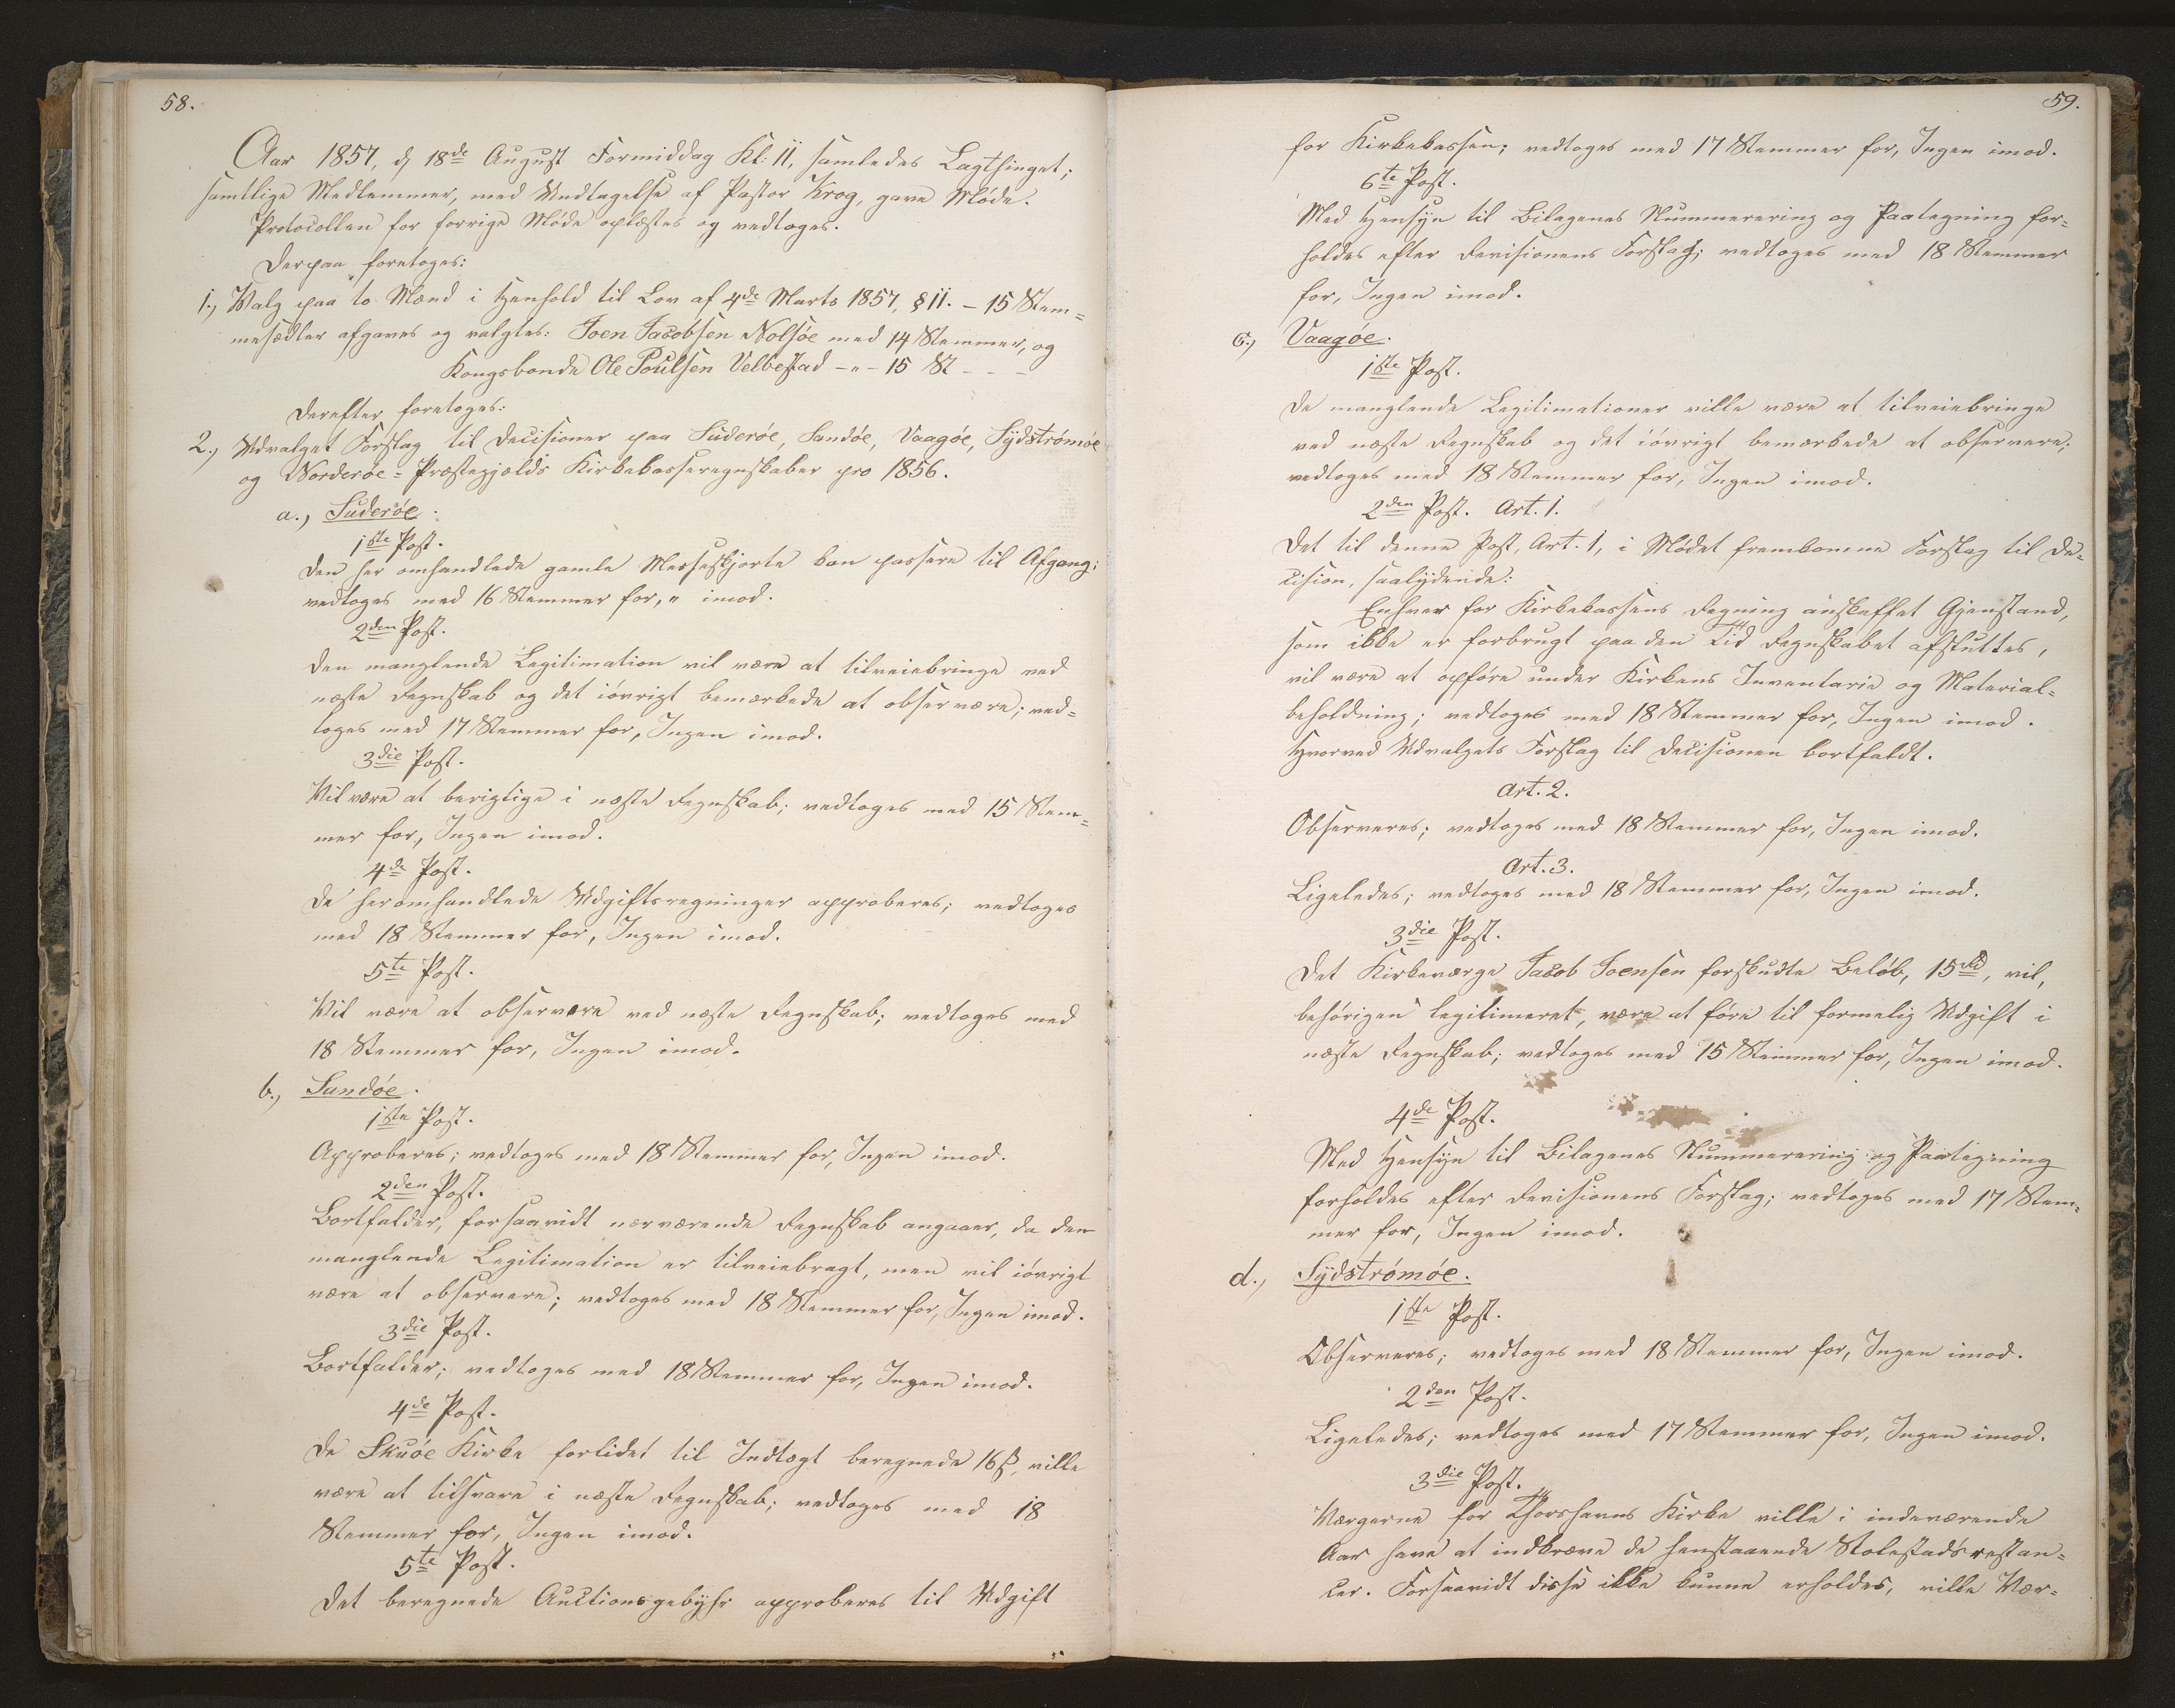 58.
Aar 1857, d. 18de August Formiddag Kl: 11, samledes Lagthinget;
samtlige Medlemmer, med Undtagelse af Pastor Krog, gave Møde.
Protocollen for forrige Møde oplæstes og vedtoges.
Derpaa foretoges:
1., Valg paa to Mænd i Henhold til Lov af 4de Marts 1857, § 11. – 15 Stem=
mesedler afgaves og valgtes: Joen Jacobsen Nolsøe med 14 Stemmer, og
Kongsbonde Ole Poulsen Velbestad – " – 15 St – – –
Derefter foretoges:
2., Udvalget Forslag til Decisioner paa Suderøe, Sandøe, Vaagøe, Sydstrømøe
og Norderøe=Præstegjælds Kirkekasseregnskaber pro 1856.
a., Suderøe.
1ste Post.
Den her omhandlede gamle Messeskjorte kan passere til Afgang;
vedtoges med 16 Stemmer for, " imod.
2den Post.
Den manglende Legitimation vil være at tilveiebringe ved
næste Regnskab og det iøvrigt bemærkede at observere; ved=
toges med 17 Stemmer for, Ingen imod.
3die Post.
Vil være at berigtige i næste Regnskab; vedtoges med 15 Stem=
mer for, Ingen imod.
4de Post.
De heromhandlede Udgiftsregninger approberes; vedtoges
med 18 Stemmer for, Ingen imod.
5te Post.
Vil være at observere ved næste Regnskab; vedtoges med
18 Stemmer for, Ingen imod.
b., Sandøe.
1ste Post.
Approberes; vedtoges med 18 Stemmer for, Ingen imod.
2den Post.
Bortfalder, forsaavidt nærværende Regnskab angaaer, da den
manglende Legitimation er tilveiebragt, men vil iøvrigt
være at observere; vedtoges med 18 Stemmer for, Ingen imod.
3die Post.
Bortfalder; vedtoges med 18 Stemmer for, Ingen imod.
4de Post.
De Skuøe Kirke forlidet til Indtægt beregnede 16 ß, ville
være at tilsvare i næste Regnskab; vedtoges med 18
Stemmer for, Ingen imod.
5te Post.
Det beregnede Auctionsgebyhr approberes til Udgift
59.
for Kirkekassen; vedtoges med 17 Stemmer for, Ingen imod.
6te Post.
Med Hensyn til Bilagenes Nummerering og Paategning for=
holdes efter Revisionens Forslag; vedtoges med 18 Stemmer
for, Ingen imod.
c., Vaagøe.
1ste Post.
De manglende Legitimationer ville være at tilveiebringe
ved næste Regnskab og det iøvrigt bemærkede at observere;
vedtoges med 18 Stemmer for, Ingen imod.
2den Post. Art. 1.
Det til denne Post, Art. 1, i Mødet fremkomne Forslag til De=
cision, saalydende:
Enhver for Kirkekassens Regning anskaffet Gjenstand,
som ikke er forbrugt paa den Tid Regnskabet afsluttes,
vil være at opføre under Kirkens Inventarie og Material=
beholdning; vedtoges med 18 Stemmer for, Ingen imod.
Hvorved Udvalgets Forslag til Decisionen bortfaldt.
Art. 2.
Observeres; vedtoges med 18 Stemmer for, Ingen imod.
Art. 3.
Ligeledes; vedtoges med 18 Stemmer for, Ingen imod.
3die Post.
Det Kirkeværge Jacob Joensen forskudte Beløb, 15 rd, vil,
behørigen legitimeret, være at føre til formelig Udgift i
næste Regnskab; vedtoges med 15 Stemmer for, Ingen imod.
4de Post.
Med Hensyn til Bilagenes Nummerering og Paategning
forholdes efter Revisionens Forslag; vedtoges med 17 Stem=
mer for, Ingen imod.
d., Sydstrømøe.
1ste Post.
Observeres; vedtoges med 18 Stemmer for, Ingen imod.
2den Post.
Ligeledes; vedtoges med 17 Stemmer for, Ingen imod.
3die Post.
Værgerne for Thorshavns Kirke ville i indeværende
Aar have at indkræve de henstaaende Stolestadsrestan=
cer. Forsaavidt disse ikke kunne erholdes, ville Vær=